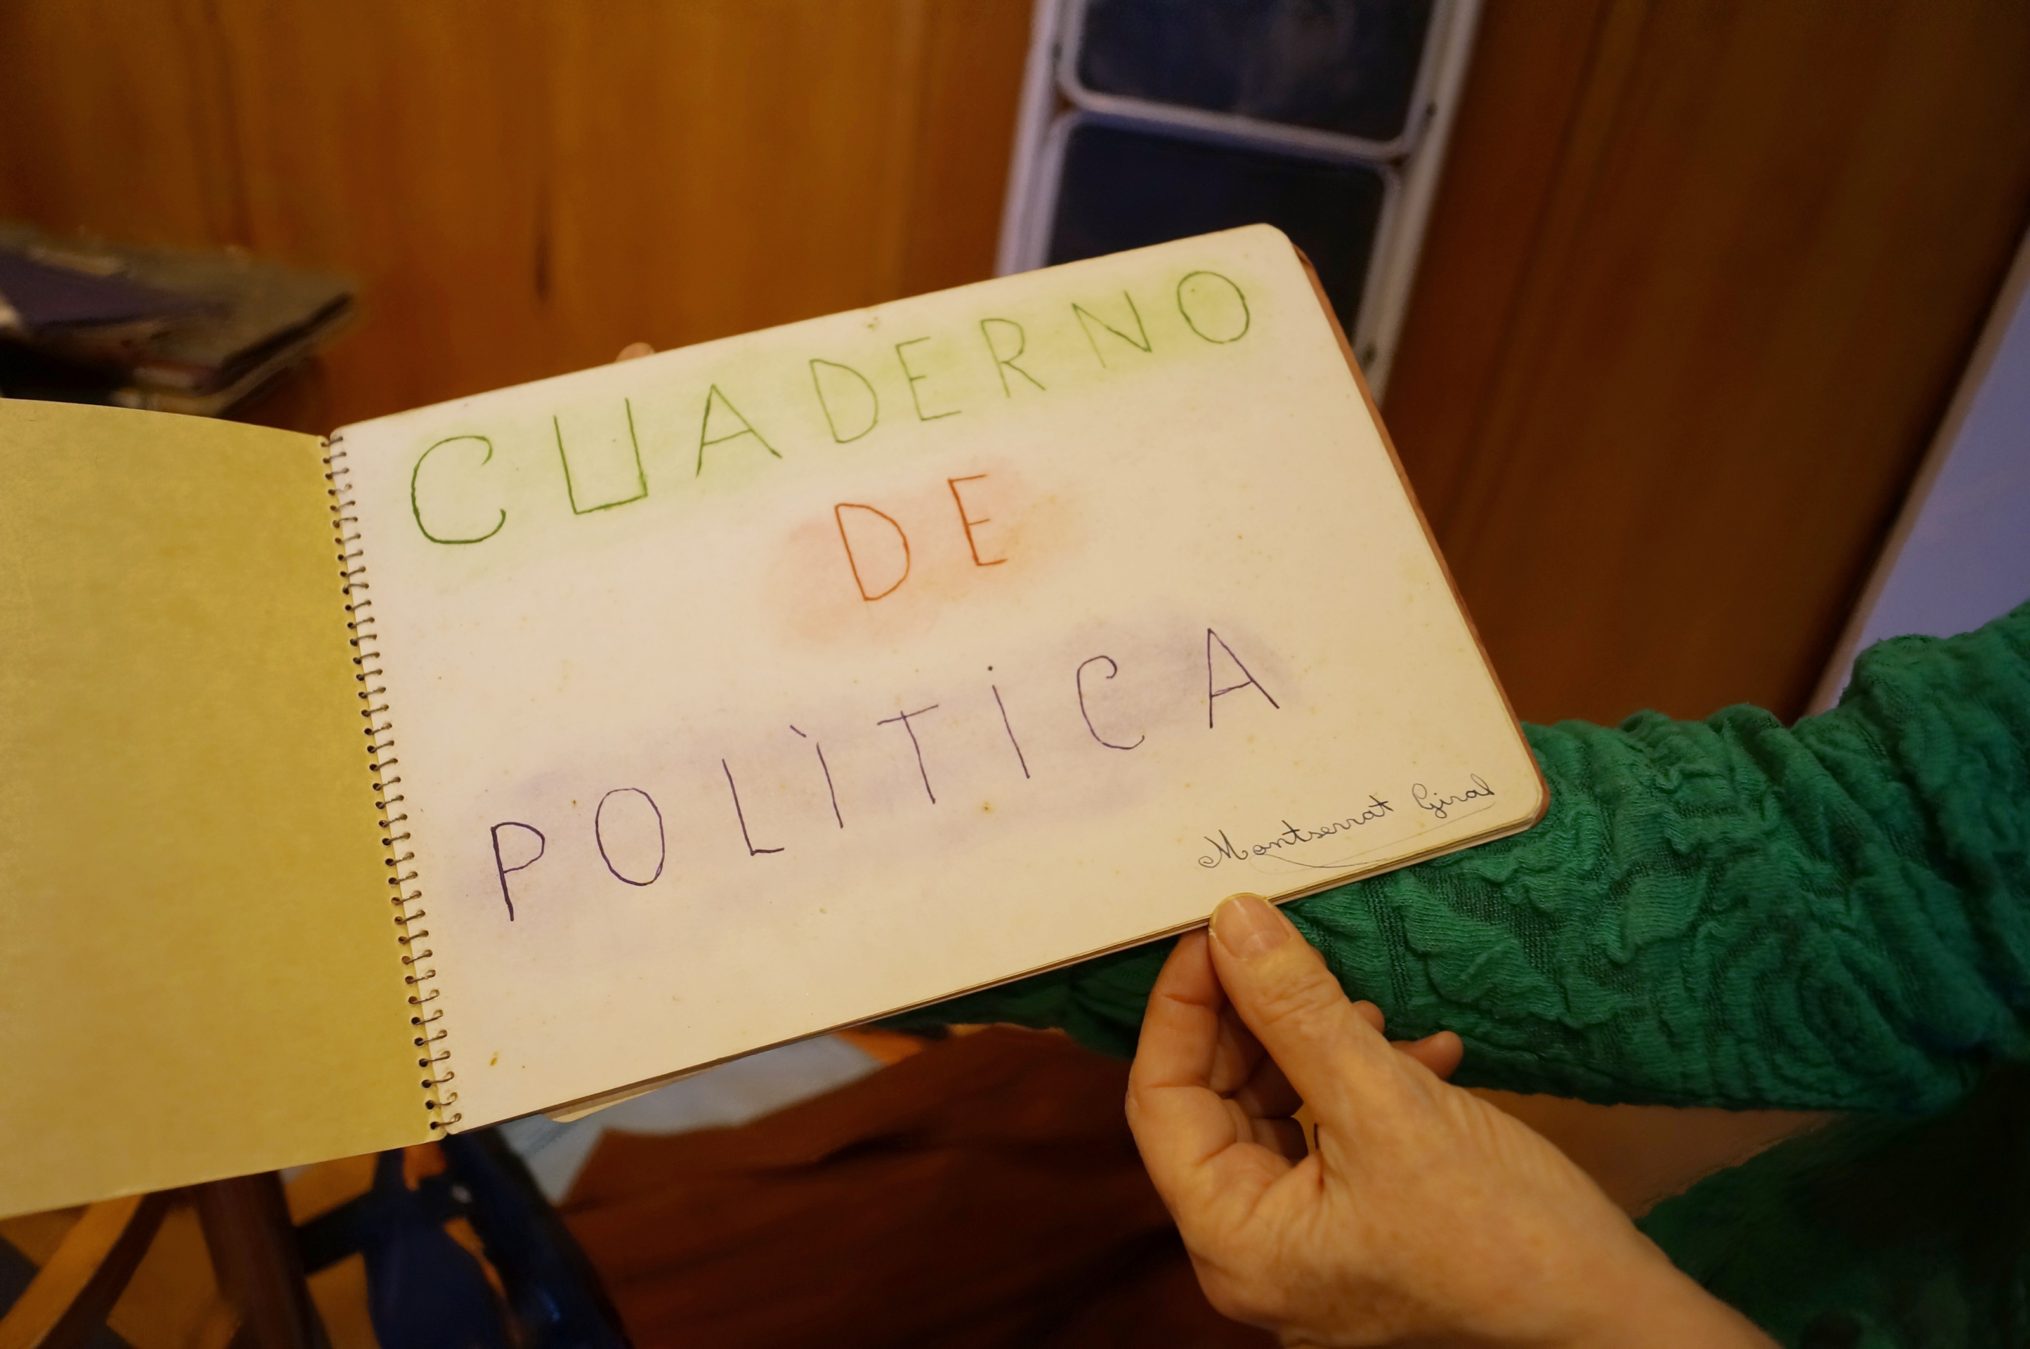 CUADERNO
DE
POLÌTICA
Montserrat Giral